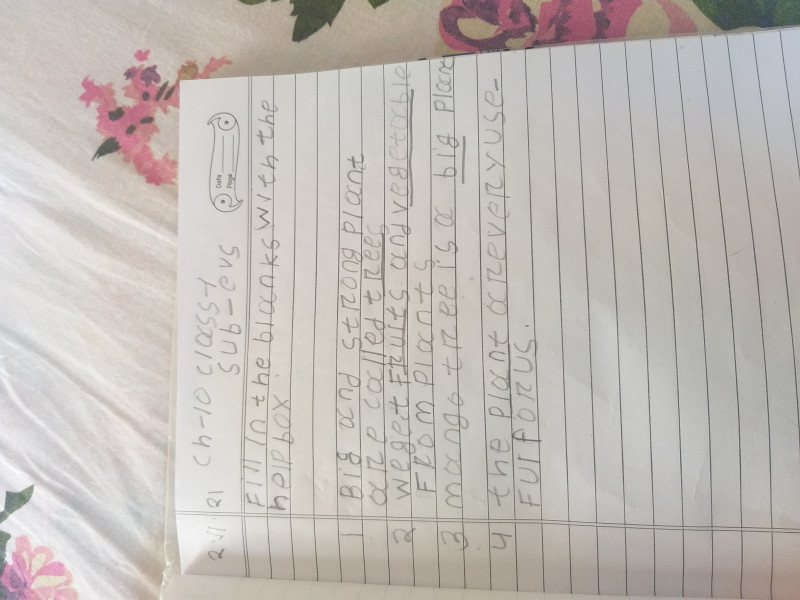 2 11 21 Ch-10 class-1
Sub-evs
Date
Page
Fill in the blanks with the
help box.
1 Big and strong plant
are called trees
2 we get Fruits and vegetable
From plants
3 mango tree is a big plan
4 the plant are very use-
Ful For us.